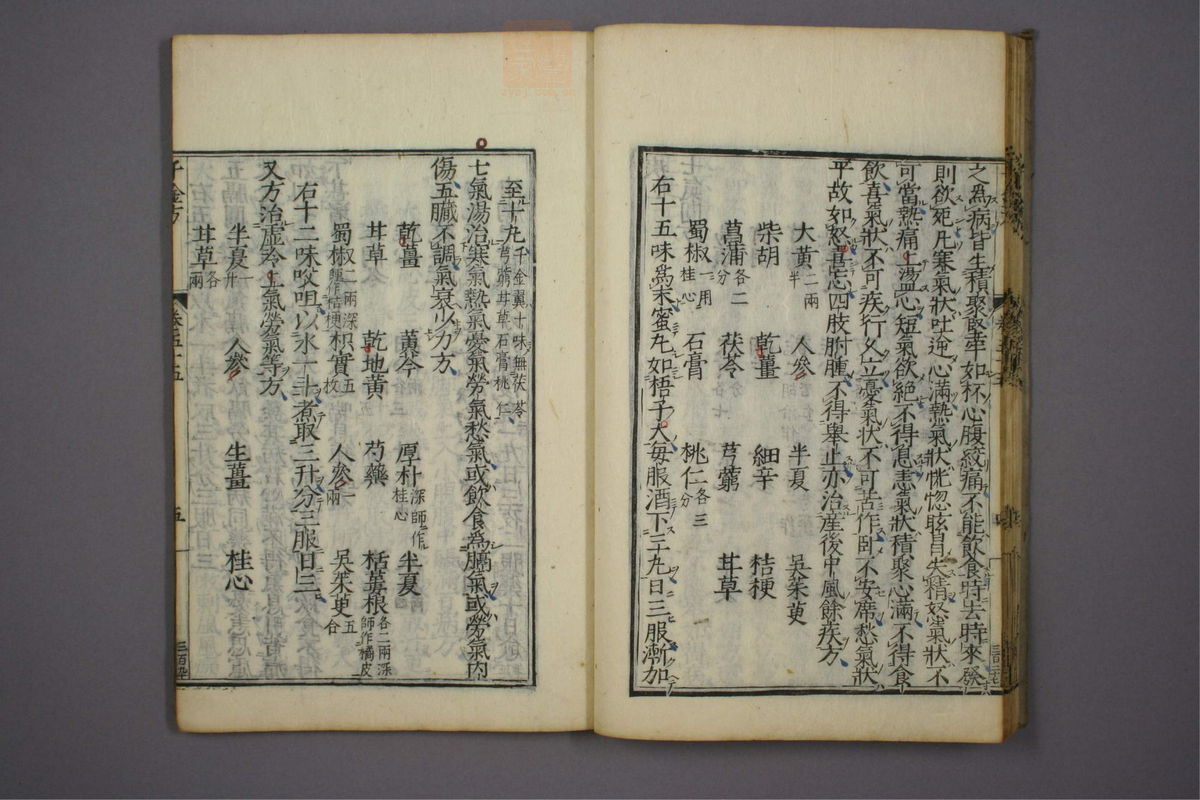 之爲病皆生積聚堅牢如杯心腹絞痛不能飲食時去時來發
則欲死凡寒氣狀吐逆心滿熱氣狀恍惚眩冒失精怒氣狀不
可當熱痛上盪心短氣欲絕不得息恚氣狀積聚心滿不得食
飲喜氣狀不可疾行久立憂氣狀不可苦作臥不安席愁氣狀
平故如怒喜忘四肢胕腫不得舉止亦治産後中風餘疾方
大黃二兩半 人參 半夏 吳茱萸
柴胡 乾薑 細辛 桔梗
菖蒲各二分 茯苓 芎藭 甘草
蜀椒一用桂心 石膏 桃仁各三分
右十五味爲末蜜丸如梧子大每服酒下三丸日三服漸加
至十丸千金翼十味無茯苓芎藭甘草石膏桃仁
七氣湯治寒氣熱氣憂氣勞氣愁氣或飲食爲膈氣或勞氣內
傷五臟不調氣衰少力方
乾薑 黃芩 厚朴深師作桂心 半夏
甘草 乾地黃 芍藥 栝蔞根各二兩深師作橘皮
蜀椒二兩深師作桔梗 枳實五枚 人參一兩 吳茱萸五合
右十二味㕮咀以水一斗煮取三升分三服日三
又方治虛冷上氣勞氣等方
半夏一升 人參 生薑 桂心
甘草各一兩
千金方 卷五十五 五